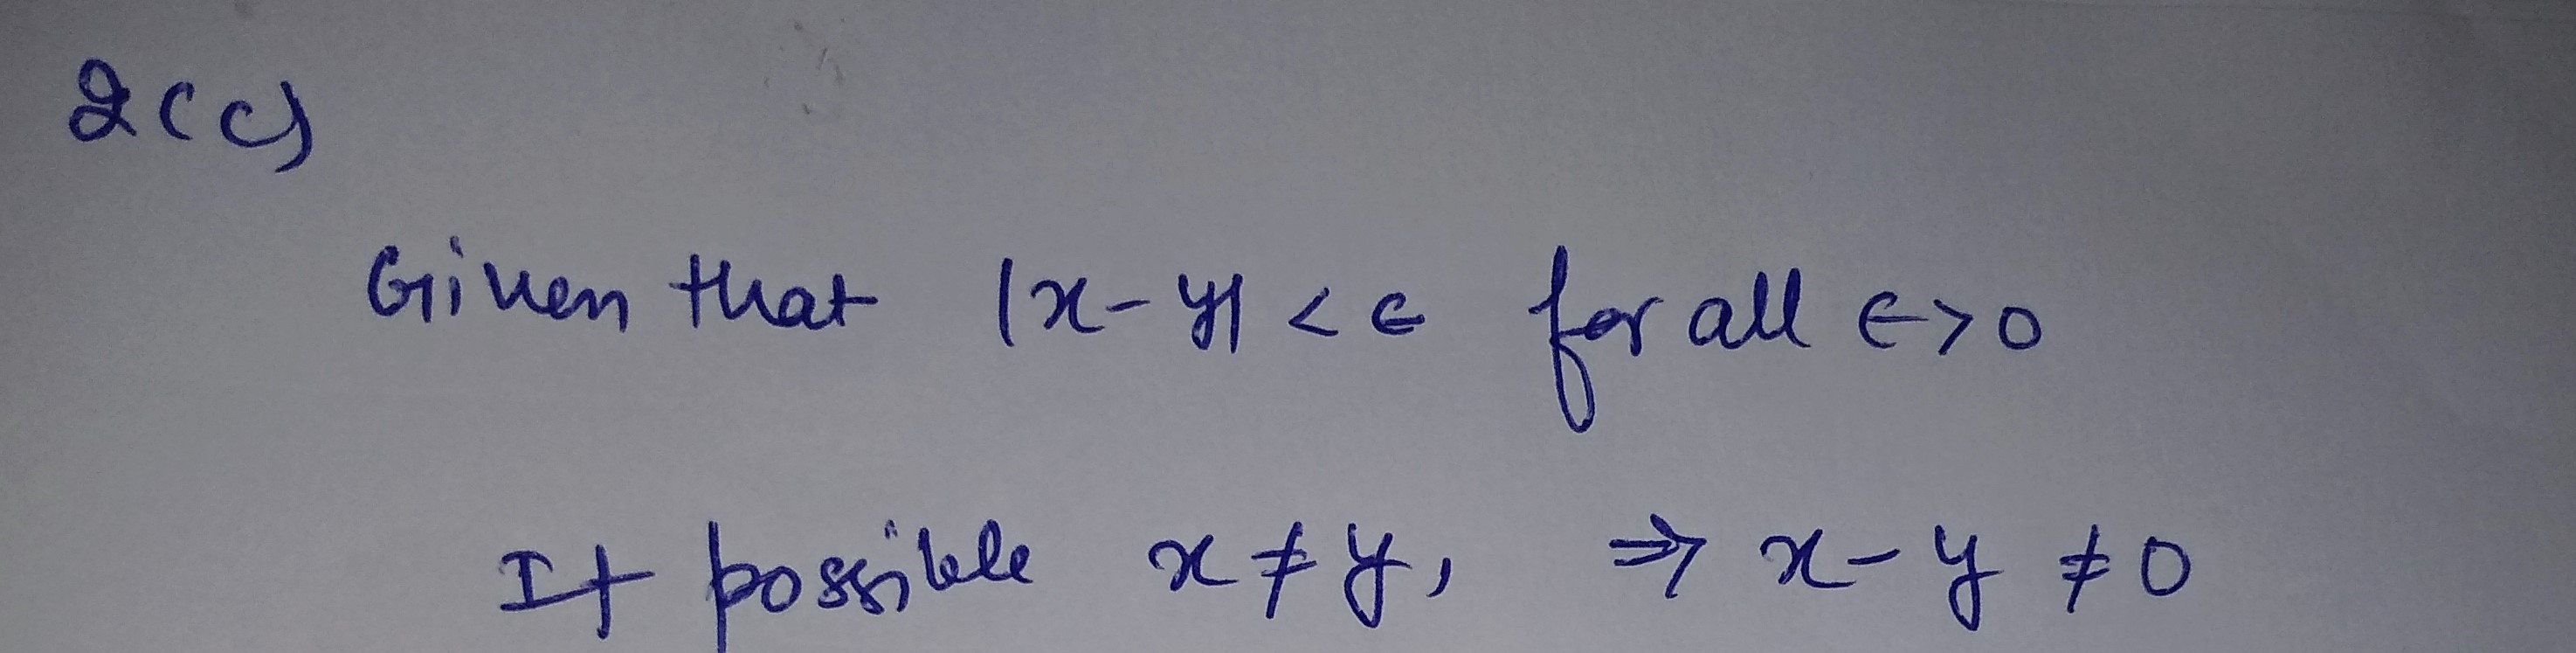 2(c)
Given that |x-y| < ϵ for all ϵ>0
If possible x ≠ y, ⇒ x-y ≠ 0